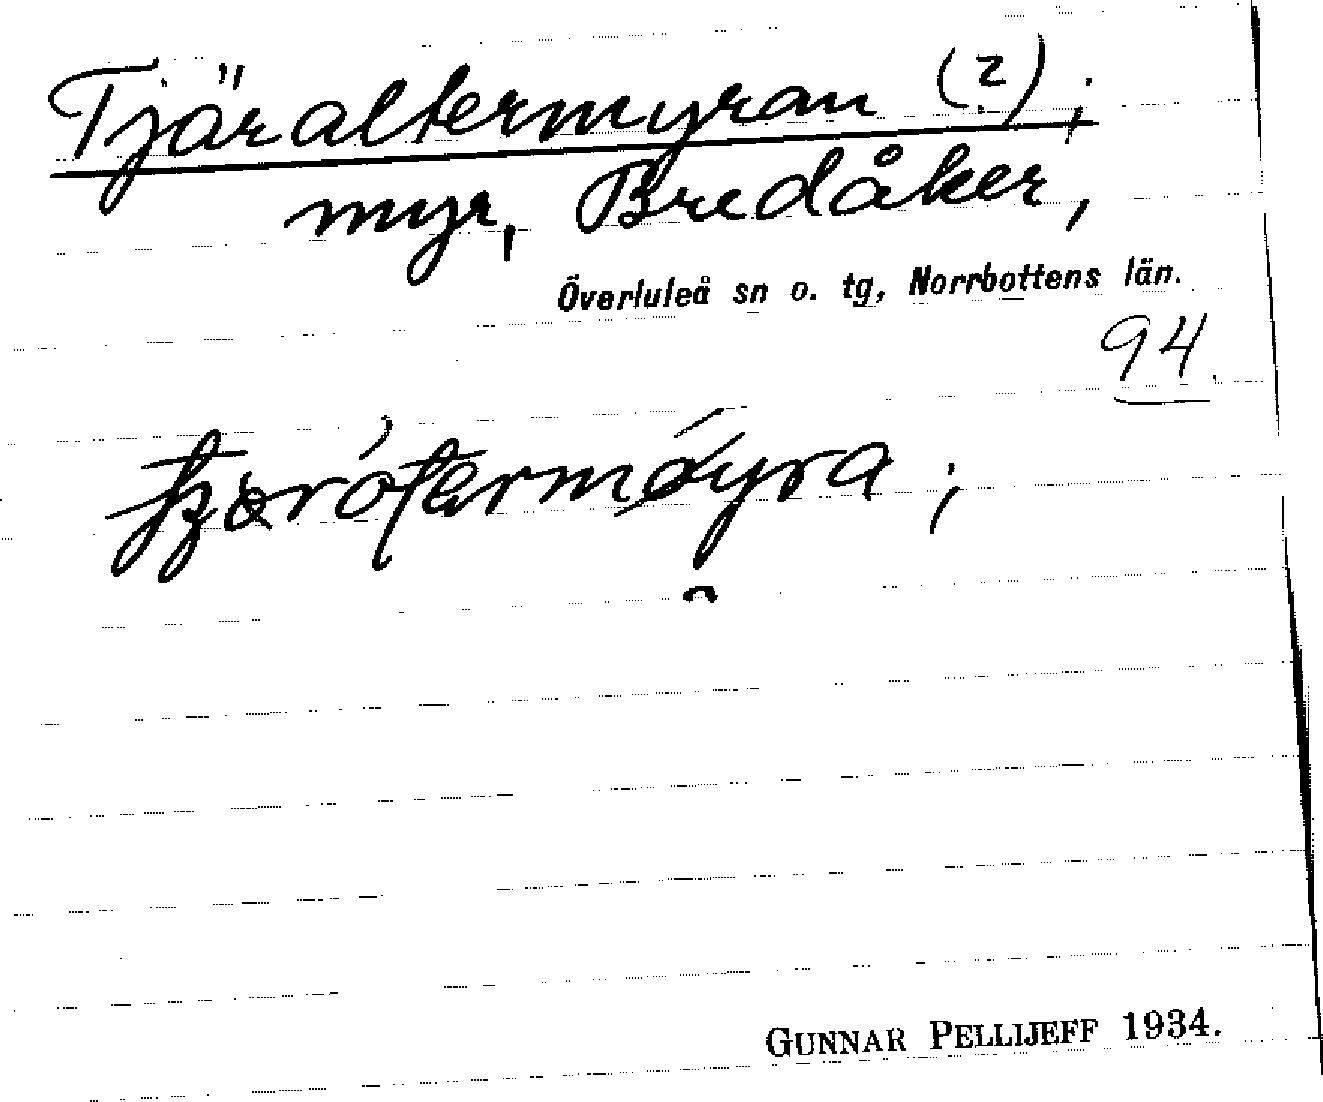 Tjäraltermyran (?);
myr, Bredåker,
Överluleå sn o. tg, Norrbottens län.
94.
GUNNAR PELLIJEFF 1934.